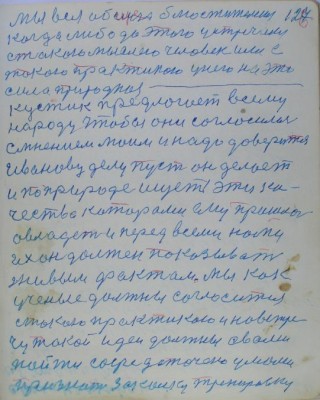 мы вси обсуда благостительны 127
когда либо до этого устречали
с такою мыслию человек или с
такою практикою у него на это
сила природная
кустик предлогает всему
народу чтобы они согласилися
с мнением моим и надо доверять
Иванову делу пуст он делает
и поприроде ищет эти ка-
чества которами ему пришлось
овладет и перед всеми нами
их он должен показывать
живым фактам. мы как
ученые должны согласится
с такою практикою и навстре
чу такой идеи должны
найти сосредоточено умом
признать закалку тренировку